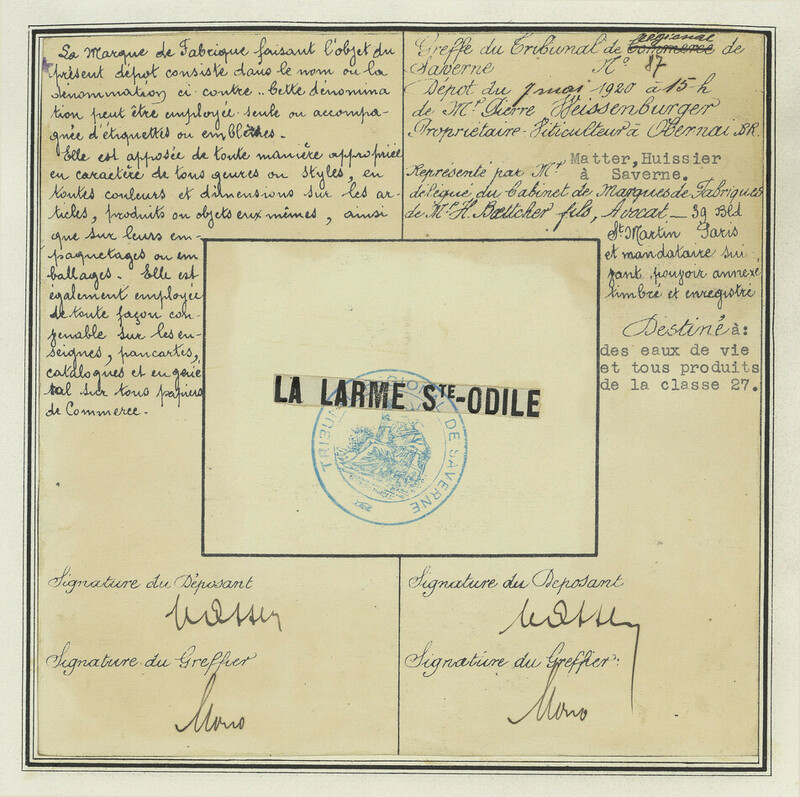 La Marque de Fabrique faisant l'objet du
présent dépot consiste dans le nom ou la
dénomination ci contre.. Cette dénomina
tion peut être employée seule ou accompa-
gnée d'étiquettes ou emblèmes.
Elle est apposée de toute manière appropriée
en caractère de tous genres ou styles, en
toutes couleurs et dimensions sur les ar-
ticles, produits ou objets eux mêmes, ainsi
que sur leurs em-
paquetages ou em
ballages. Elle est
également employée
de toute façon con-
venable sur les en-
seignes, pancartes,
catalogues et en géné
ral sur tous papiers
de Commerce.
Greffe du Tribunal de Commerce régional de
Saverne N° 87
Dépot du 7 mai 1920 à 15 h
de Mr Pierre Weissenburger
Propriétaire-Viticulteur à Obernai BR.
Représenté par Mr Matter, Huissier
à Saverne.
délégué du Cabinet de Marques de Fabriques
de Mr H. Bœttcher fils, Avocat _ 39 Bld
St Martin Paris
et mandataire sui
vant pouvoir annexé
timbré et enregistré
Destiné à:
des eaux de vie
et tous produits
de la classe 27.
LA LARME STE-ODILE
TRIBUNAL RÉGIONAL DE SAVERNE
Signature du Déposant
Signature du Deposant
Signature du Greffier
Signature du Greffier: